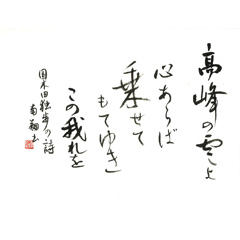 高峰の雲よ
心あらば
乗せて
もてゆき
この我れを
国木田独歩の詩
南翔書